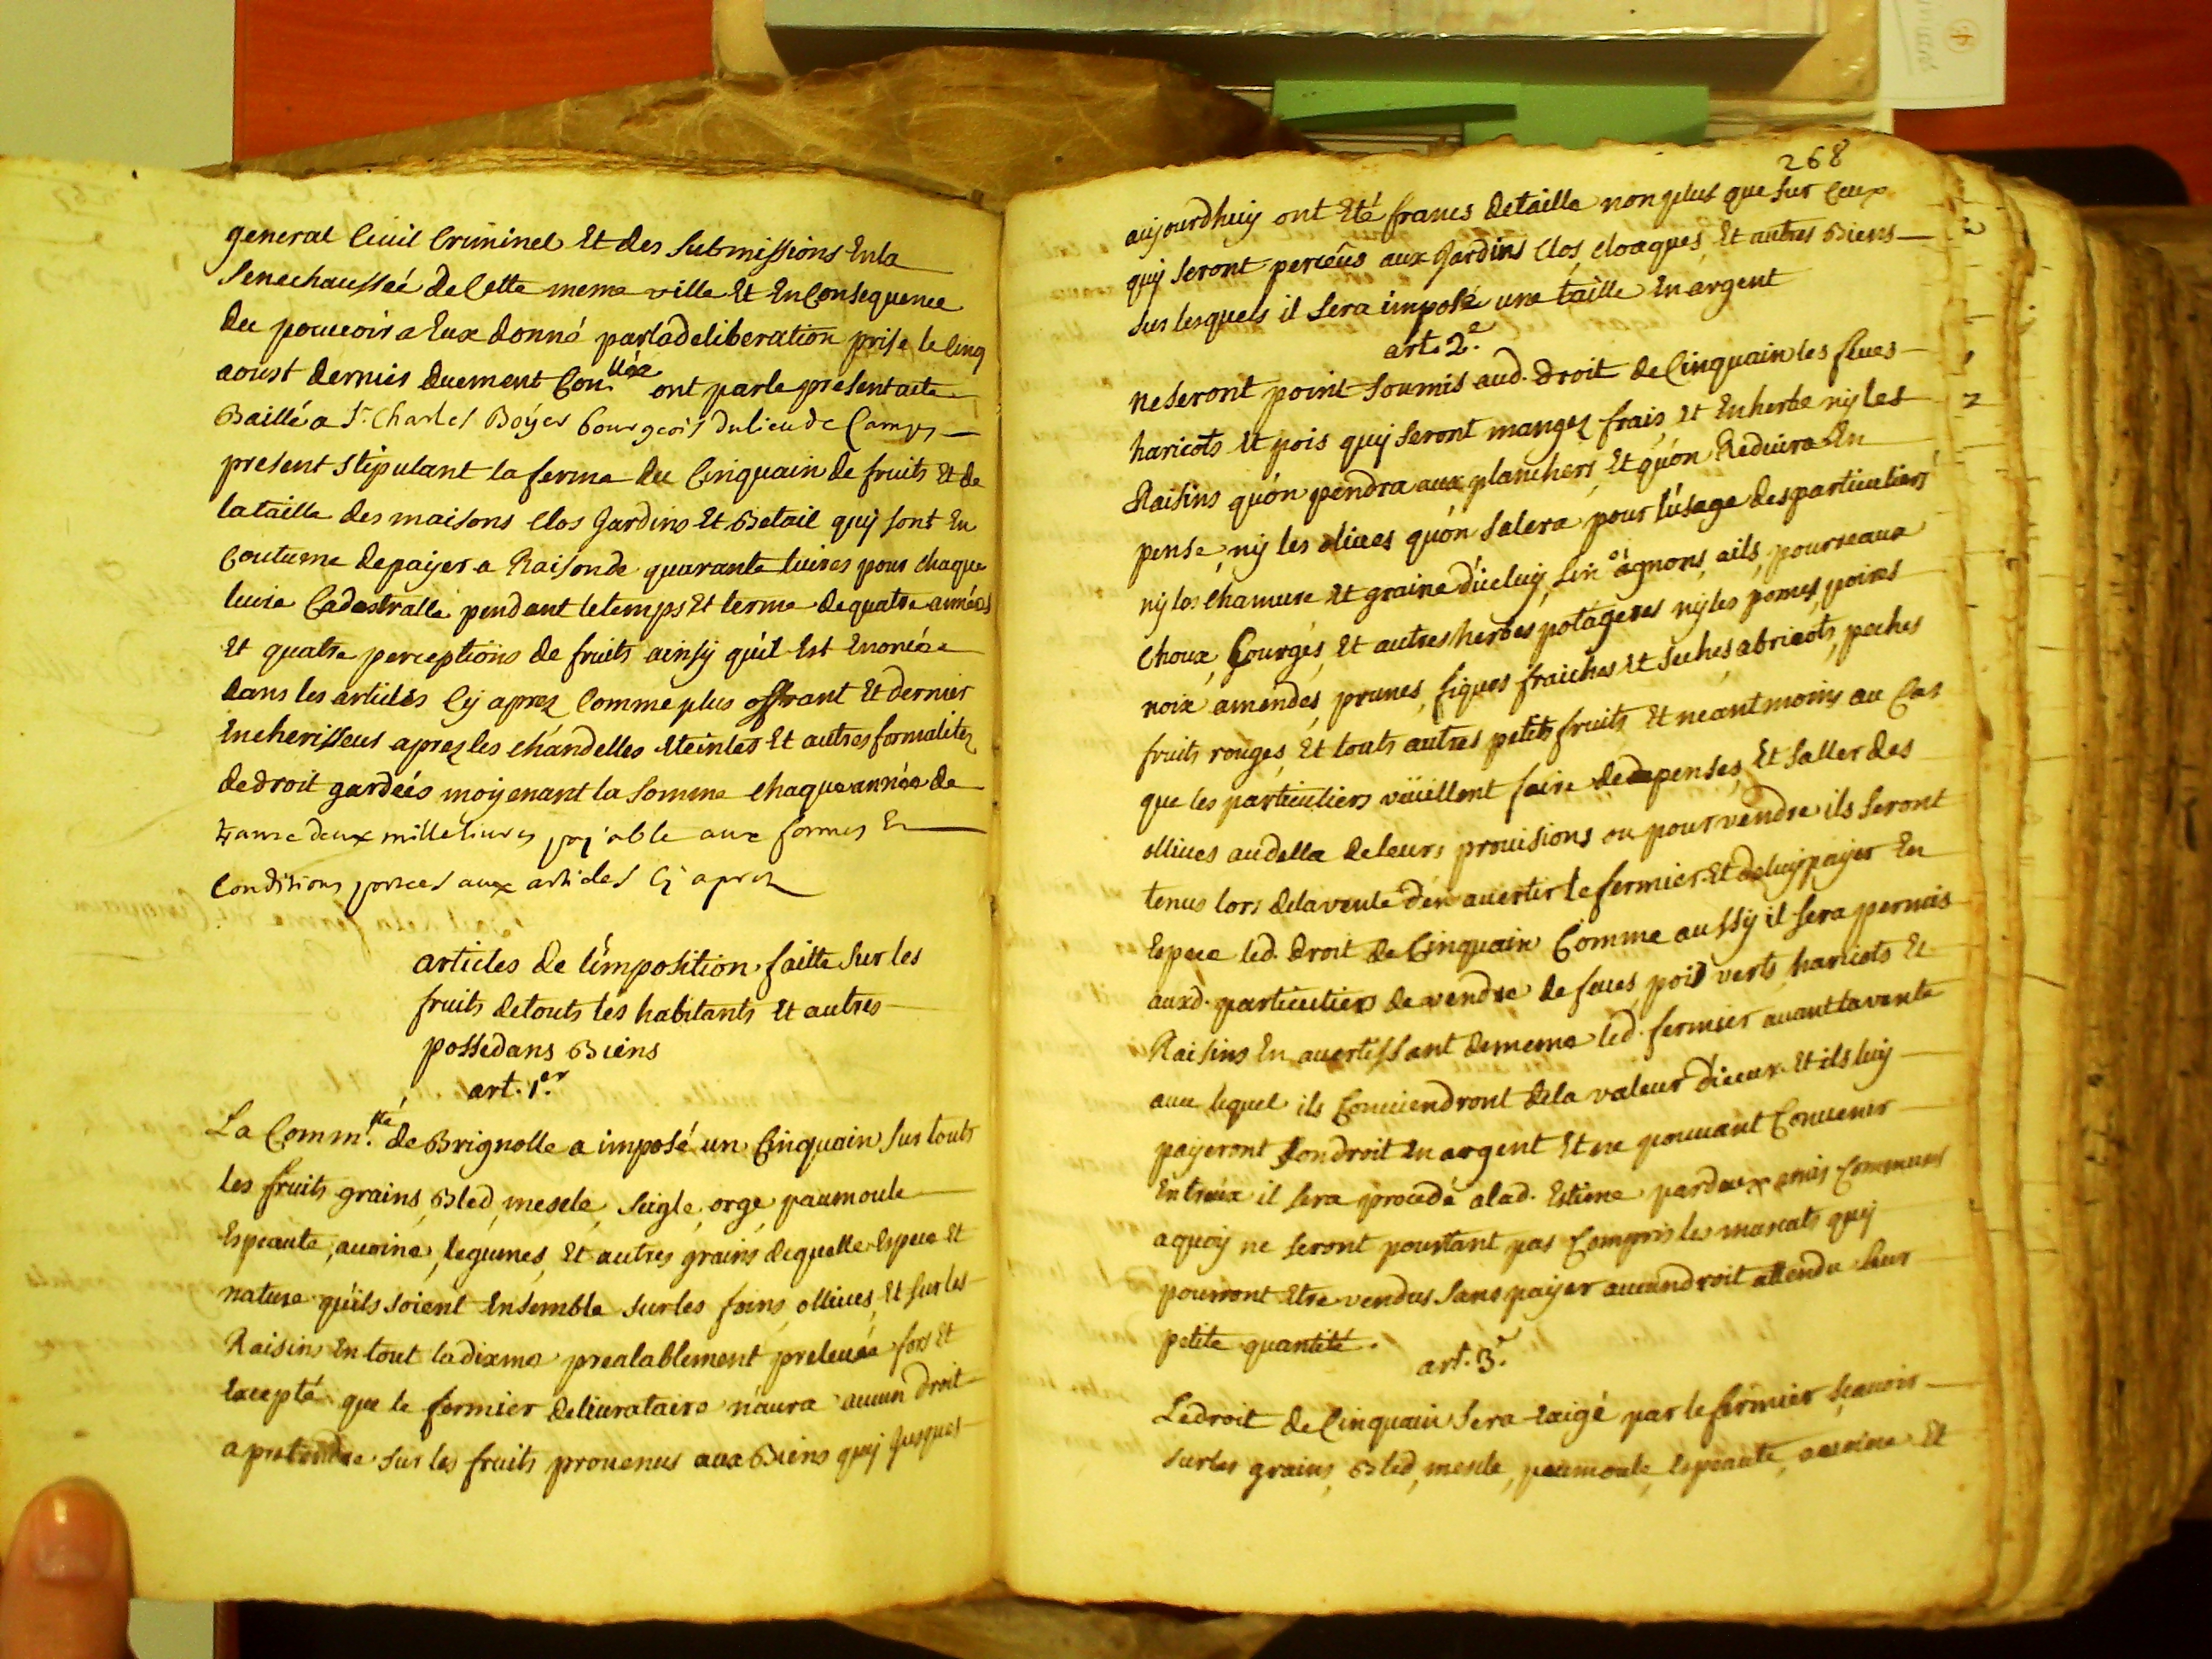 general Ciuil Criminel Et des Submissions Enla
Senechausseé deCette meme ville Et EnConsequence
du pouuoir a Eux donné parladeliberation prise le Cinq
aoust dernier duement Con.llée ont parle presentacte
Baillé a Sr. Charles Boÿer bourgeois dulieu de Camps
present stipulant la ferme du Cinquain de fruits Et de
lataille des maisons Clos Jardins Et Betail quÿ sont En
Coutume depaÿer a Raisonde quarante liures pour chaque
liure Cadastralle pendant letemps Et terme dequatre années
Et quatre perceptions de fruits ainsÿ qu'il Est Enoncée
dans les articles Cÿ aprez Comme plus offrant Et dernier
Encherisseur aprez les chandelles Eteintes Et autres formalitez
dedroit gardeés moÿenant la Somme chaque année de
deux mille liures paÿable aux formes Et
Conditions portees aux articles Cÿ aprez
articles de l'imposition faitte Sur les
fruits detouts les habitants Et autres
possedans Biens
art. 1er.
La Comm.té de Brignolle a imposé un Cinquain Sur touts
les fruits grains, Bled, mescle, Seigle, orge, paumoule
Espeaute, auoine, legumes, Et autres grains dequelle Espece Et
nature qu'ils soient Ensemble surles foins, olliues, Et sur les
Raisins En tout ladixme prealablement preleuée fors Et
Excepté que le fermier deliurataire n'aura aucun droit
a pretendre sur les fruits prouenus aux Biens quÿ Jusques
268
aujourdhuy ont Eté francs detaille non plus que sur Ceux
quÿ seront perceûs aux Jardins Clos, Cloaques, Et autres Biens
sur lesquels il sera imposé une taille En argent
art. 2e.
ne seront point soumis aud. droit de Cinquain les feues
haricots Et pois quÿ seront mangez frais Et Enherbe nÿ les
Raisins qu'on pendra aux planchers, Et qu'on Reduira En
pense, nÿ les oliues qu'on salera pour l'usage des particuliers
nÿ les chamure Et graine d'iceluÿ, Lin ognons, ails, pourreaux
Choux, Courges, Et autres herbes potageres nÿ les pomes, poires
noix amendes, prunes, figues fraiches Et seches, abricots, peches
fruits rouges, Et touts autres petits fruits Et neantmoins au Cas
que les particuliers vüeillent faire de penses, Et saller des
olliues audella deleurs prouisions ou pour vendre ils seront
tenus lors delavente d'en auertir le fermier Et deluÿ paÿer En
Espece led. droit de Cinquain Comme aussÿ il sera permis
auxd. particuliers de vendre de feues, pois verts, haricots Et
Raisins En auertissant dememe led. fermier auant lavente
auec lequel ils Conuiendront dela valeur d'iceux Et ils luÿ
paÿeront son droit En argent Et ne pouuant Conuenir
Entreux il sera procedé alad. Estime par deux amis Communs
aquoÿ ne seront pourtant pas Compris les muscats quÿ
pourront Etre vendus sans paÿer aucun droit attendu leur
petite quantité.
art. 3e.
Le droit de Cinquain sera Exigé par le fermier sçauoir
surles grains, Bled, mescle, paumoule, Espeaute, auoine Et